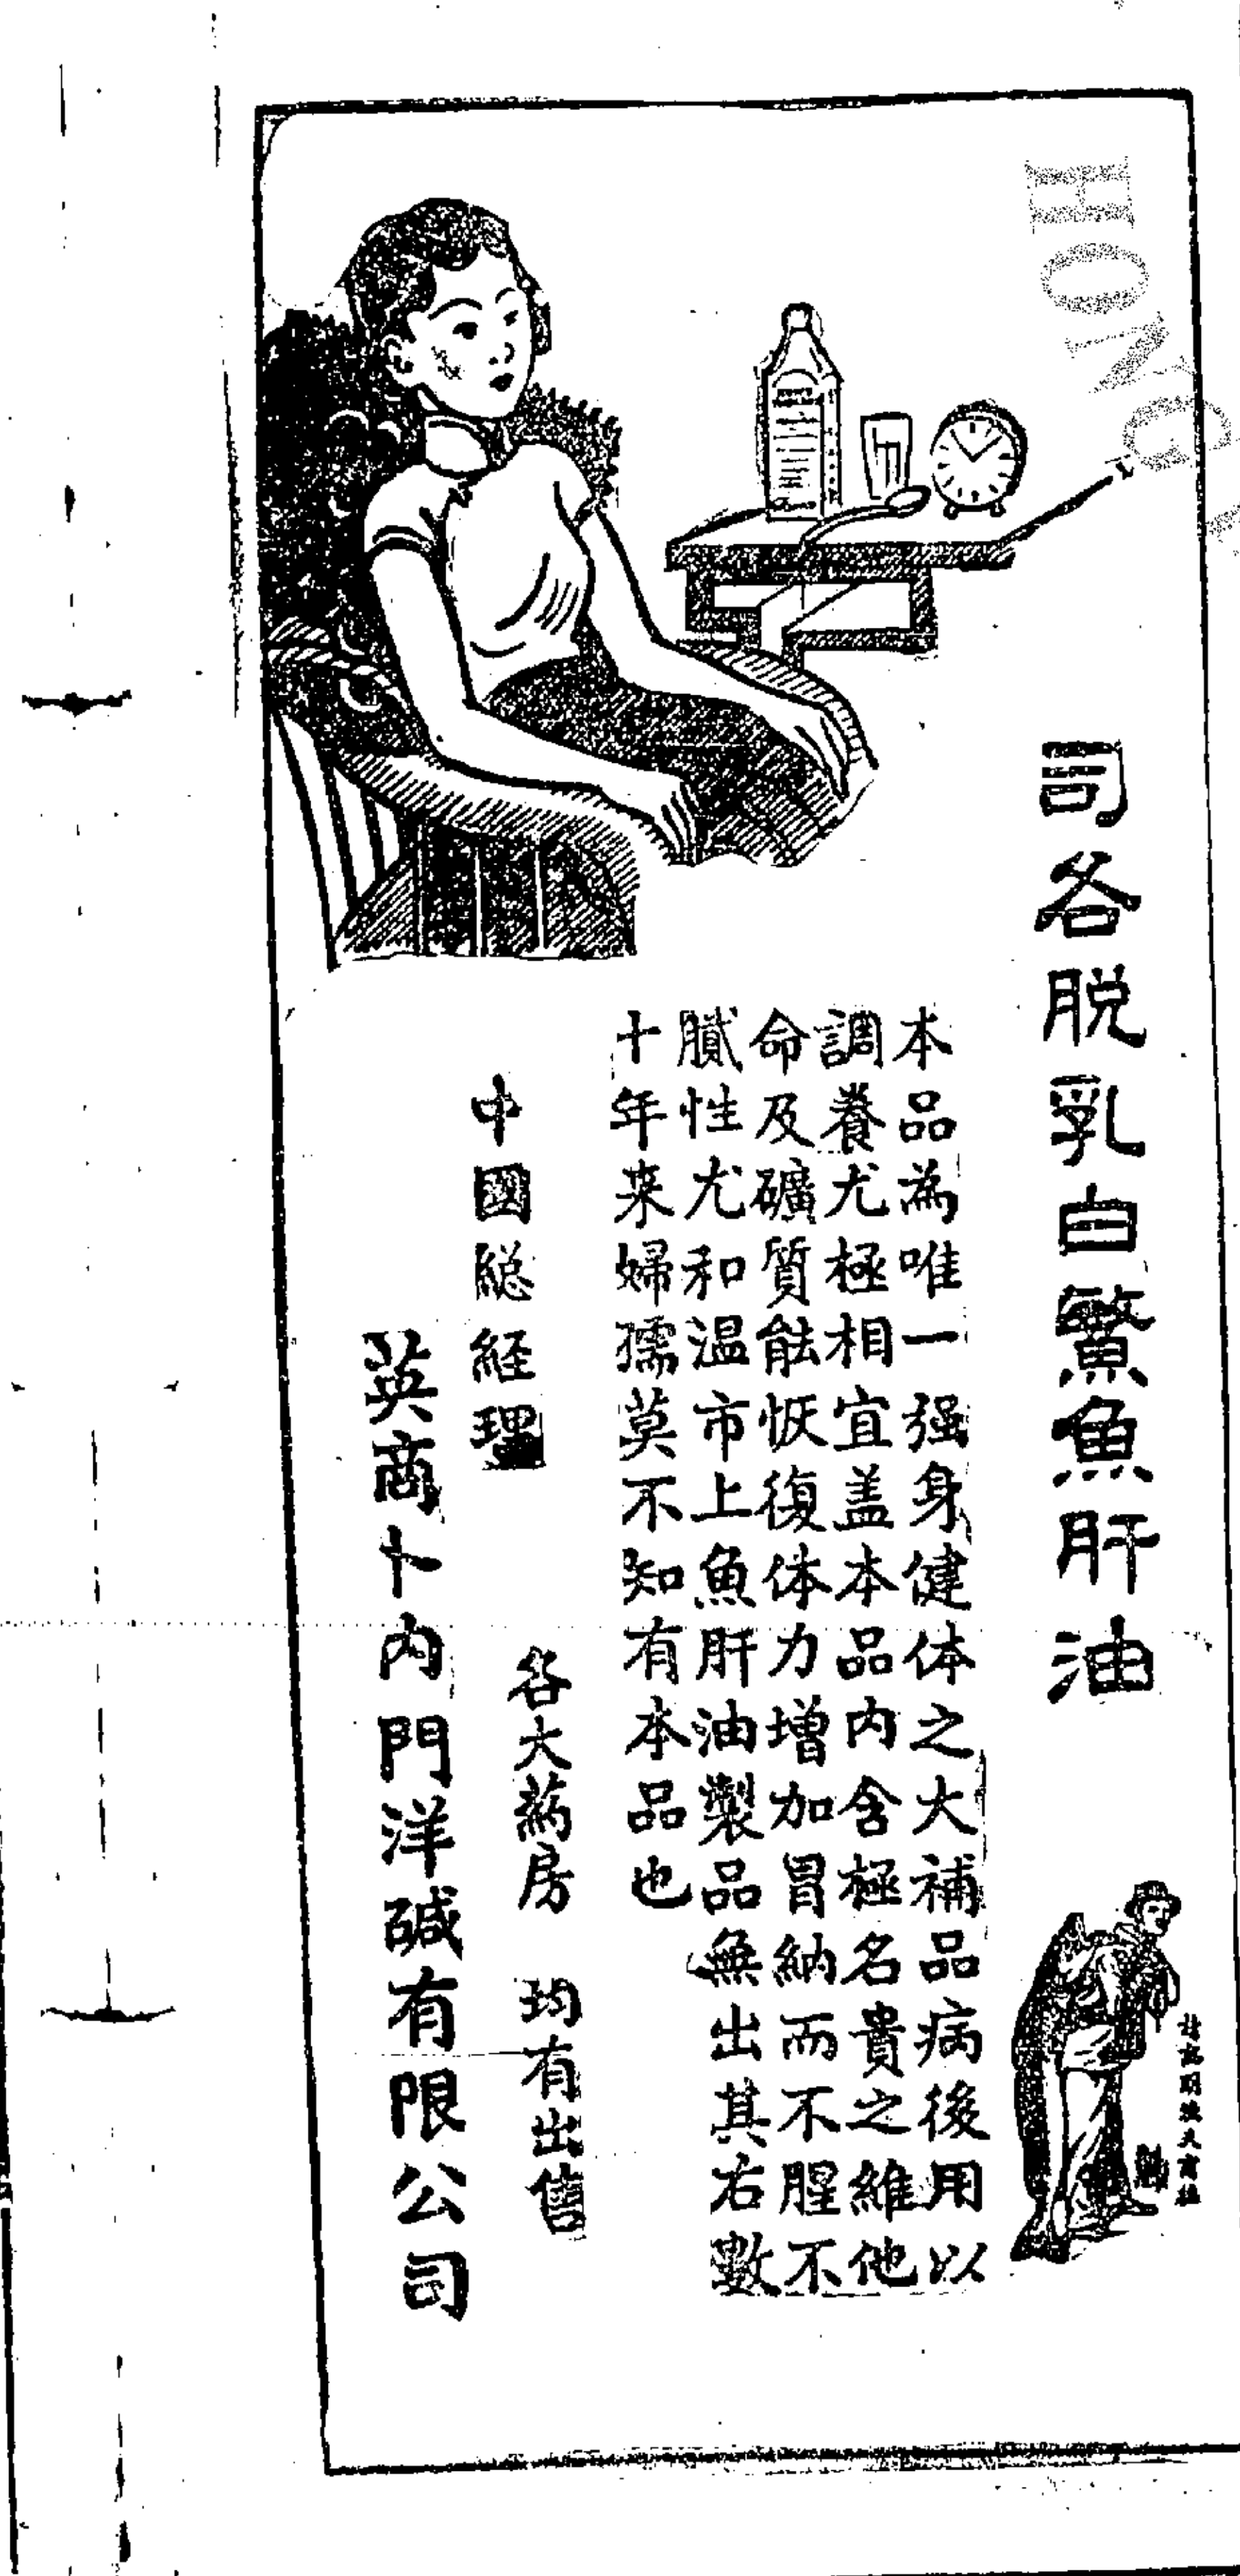 司各脱乳白鰵魚肝油
本品為唯一强身健体之大補品病後用以
調養尤極相宜盖本品内含極名貴之維他
命及礦質能恢復体力增加胃納而不腥不
膩性尤和温市上魚肝油製品無出其右數
十年来婦孺莫不知有本品也
各大葯房 均有出售
中國総経理
英商卜内門洋碱有限公司
HONG